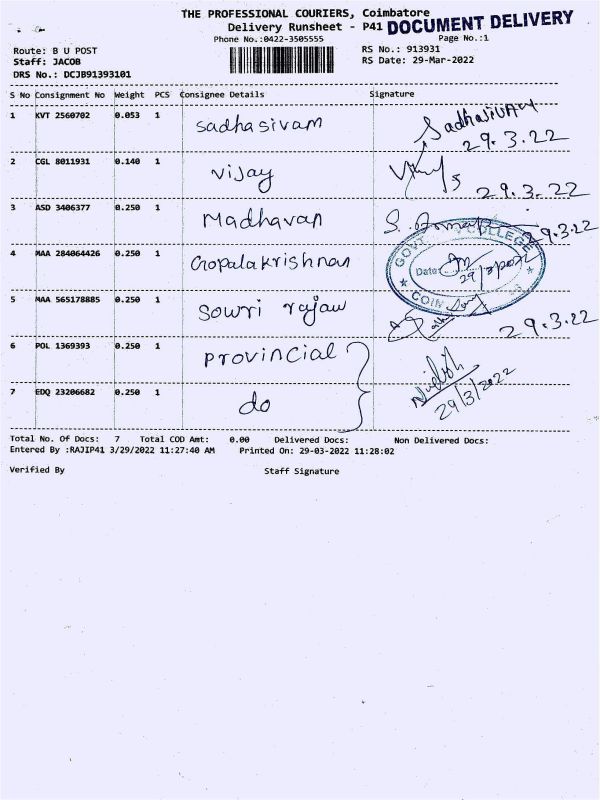 THE PROFESSIONAL COURIERS, Coimbatore
Delivery Runsheet - P41 DOCUMENT DELIVERY
Phone No.:0422-3505555 Page No.:1
Route: B U POST RS No.: 913931
Staff: JACOB RS Date: 29-Mar-2022
DRS No.: DCJB91393101
S No Consignment No Weight PCS Consignee Details Signature
1 KVT 2560702 0.053 1 sadhasivam Sadhasivam
29.3.22
2 CGL 8011931 0.140 1 vijay
29.3.22
3 ASD 3406377 0.250 1 Madhavan
29.3.22
GOVT COLLEGE
4 MAA 284064426 0.250 1 Gopalakrishnan
Date:
COIM
5 MAA 565178885 0.250 1 sowri rajan
29.3.22
6 POL 1369393 0.250 1 provincial
7 EDQ 23206682 0.250 1 do
29/3/2022
Total No. Of Docs: 7 Total COD Amt: 0.00 Delivered Docs: Non Delivered Docs:
Entered By :RAJIP41 3/29/2022 11:27:40 AM Printed On: 29-03-2022 11:28:02
Verified By Staff Signature